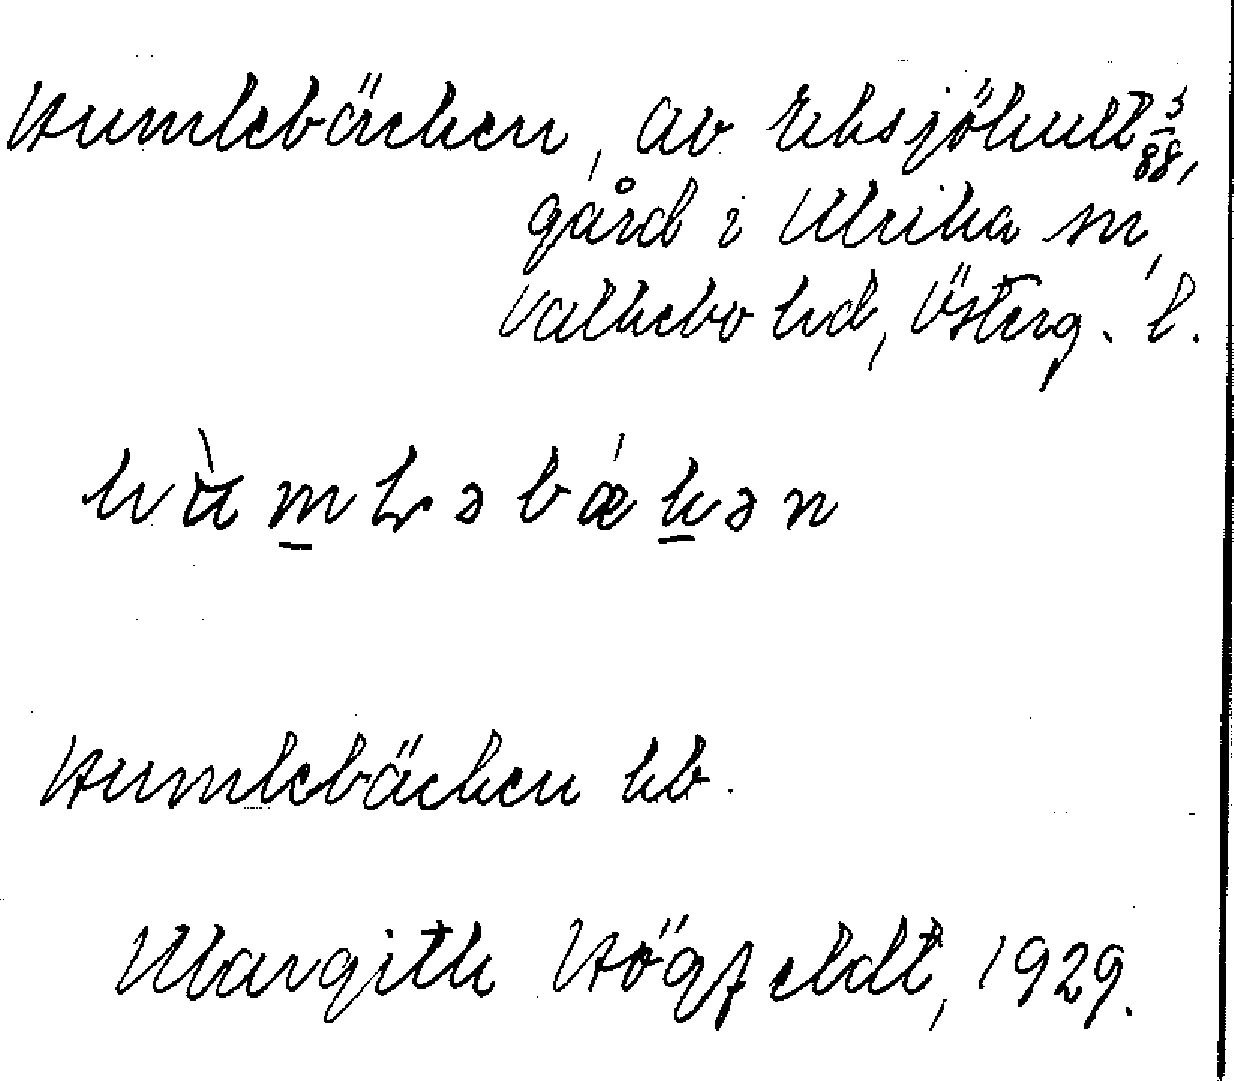 Humlebäcken, av Eksjöhult 3/88,
gård i Ulrika sn,
Valkebo hd, Österg. l.
hùm̲ləbǽk̲ən
Humlebäcken kb.
Margith Högfeldt, 1929.